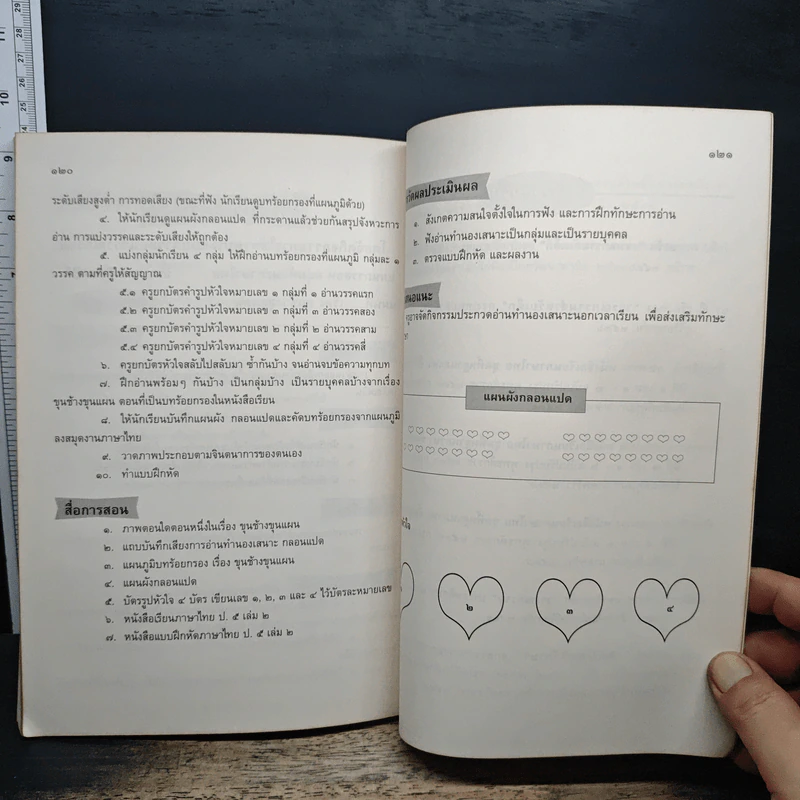 ๑๒๐
ระดับเสียงสูงต่ำ การทอดเสียง (ขณะที่ฟัง นักเรียนดูบทร้อยกรองที่แผนภูมิด้วย)
๔. ให้นักเรียนดูแผนผังกลอนแปด ที่กระดานแล้วช่วยกันสรุปจังหวะการ
อ่าน การแบ่งวรรคและระดับเสียงให้ถูกต้อง
๕. แบ่งกลุ่มนักเรียน ๔ กลุ่ม ให้ฝึกอ่านบทร้อยกรองที่แผนภูมิ กลุ่มละ ๑
วรรค ตามที่ครูให้สัญญาณ
๕.๑ ครูยกบัตรคำรูปหัวใจหมายเลข ๑ กลุ่มที่ ๑ อ่านวรรคแรก
๕.๒ ครูยกบัตรคำรูปหัวใจหมายเลข ๓ กลุ่มที่ ๓ อ่านวรรคสอง
๕.๓ ครูยกบัตรคำรูปหัวใจหมายเลข ๒ กลุ่มที่ ๒ อ่านวรรคสาม
๕.๔ ครูยกบัตรคำรูปหัวใจหมายเลข ๔ กลุ่มที่ ๔ อ่านวรรคสี่
๖. ครูยกบัตรหัวใจสลับไปสลับมา ซ้ำกันบ้าง จนอ่านจบข้อความทุกบท
๗. ฝึกอ่านพร้อมๆ กันบ้าง เป็นกลุ่มบ้าง เป็นรายบุคคลบ้างจากเรื่อง
ขุนช้างขุนแผน ตอนที่เป็นบทร้อยกรองในหนังสือเรียน
๘. ให้นักเรียนบันทึกแผนผัง กลอนแปดและคัดบทร้อยกรองจากแผนภูมิ
ลงสมุดงานภาษาไทย
๙. วาดภาพประกอบตามจินตนาการของตนเอง
๑๐. ทำแบบฝึกหัด
สื่อการสอน
๑. ภาพตอนใดตอนหนึ่งในเรื่อง ขุนช้างขุนแผน
๒. แถบบันทึกเสียงการอ่านทำนองเสนาะ กลอนแปด
๓. แผนภูมิบทร้อยกรอง เรื่อง ขุนช้างขุนแผน
๔. แผนผังกลอนแปด
๕. บัตรรูปหัวใจ ๔ บัตร เขียนเลข ๑, ๒, ๓ และ ๔ ไว้บัตรละหมายเลข
๖. หนังสือเรียนภาษาไทย ป. ๕ เล่ม ๒
๗. หนังสือแบบฝึกหัดภาษาไทย ป. ๕ เล่ม ๒
๑๒๑
วัดผลประเมินผล
๑. สังเกตความสนใจตั้งใจในการฟัง และการฝึกทักษะการอ่าน
๒. ฟังอ่านทำนองเสนาะเป็นกลุ่มและเป็นรายบุคคล
๓. ตรวจแบบฝึกหัด และผลงาน
สนอแนะ
รูอาจจัดกิจกรรมประกวดอ่านทำนองเสนาะนอกเวลาเรียน เพื่อส่งเสริมทักษะ
แผนผังกลอนแปด
๒
๓
๔